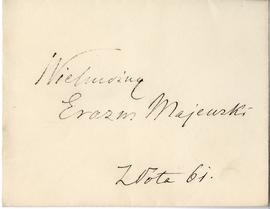 Wielmożny
Erazm Majewski
Złota 61.